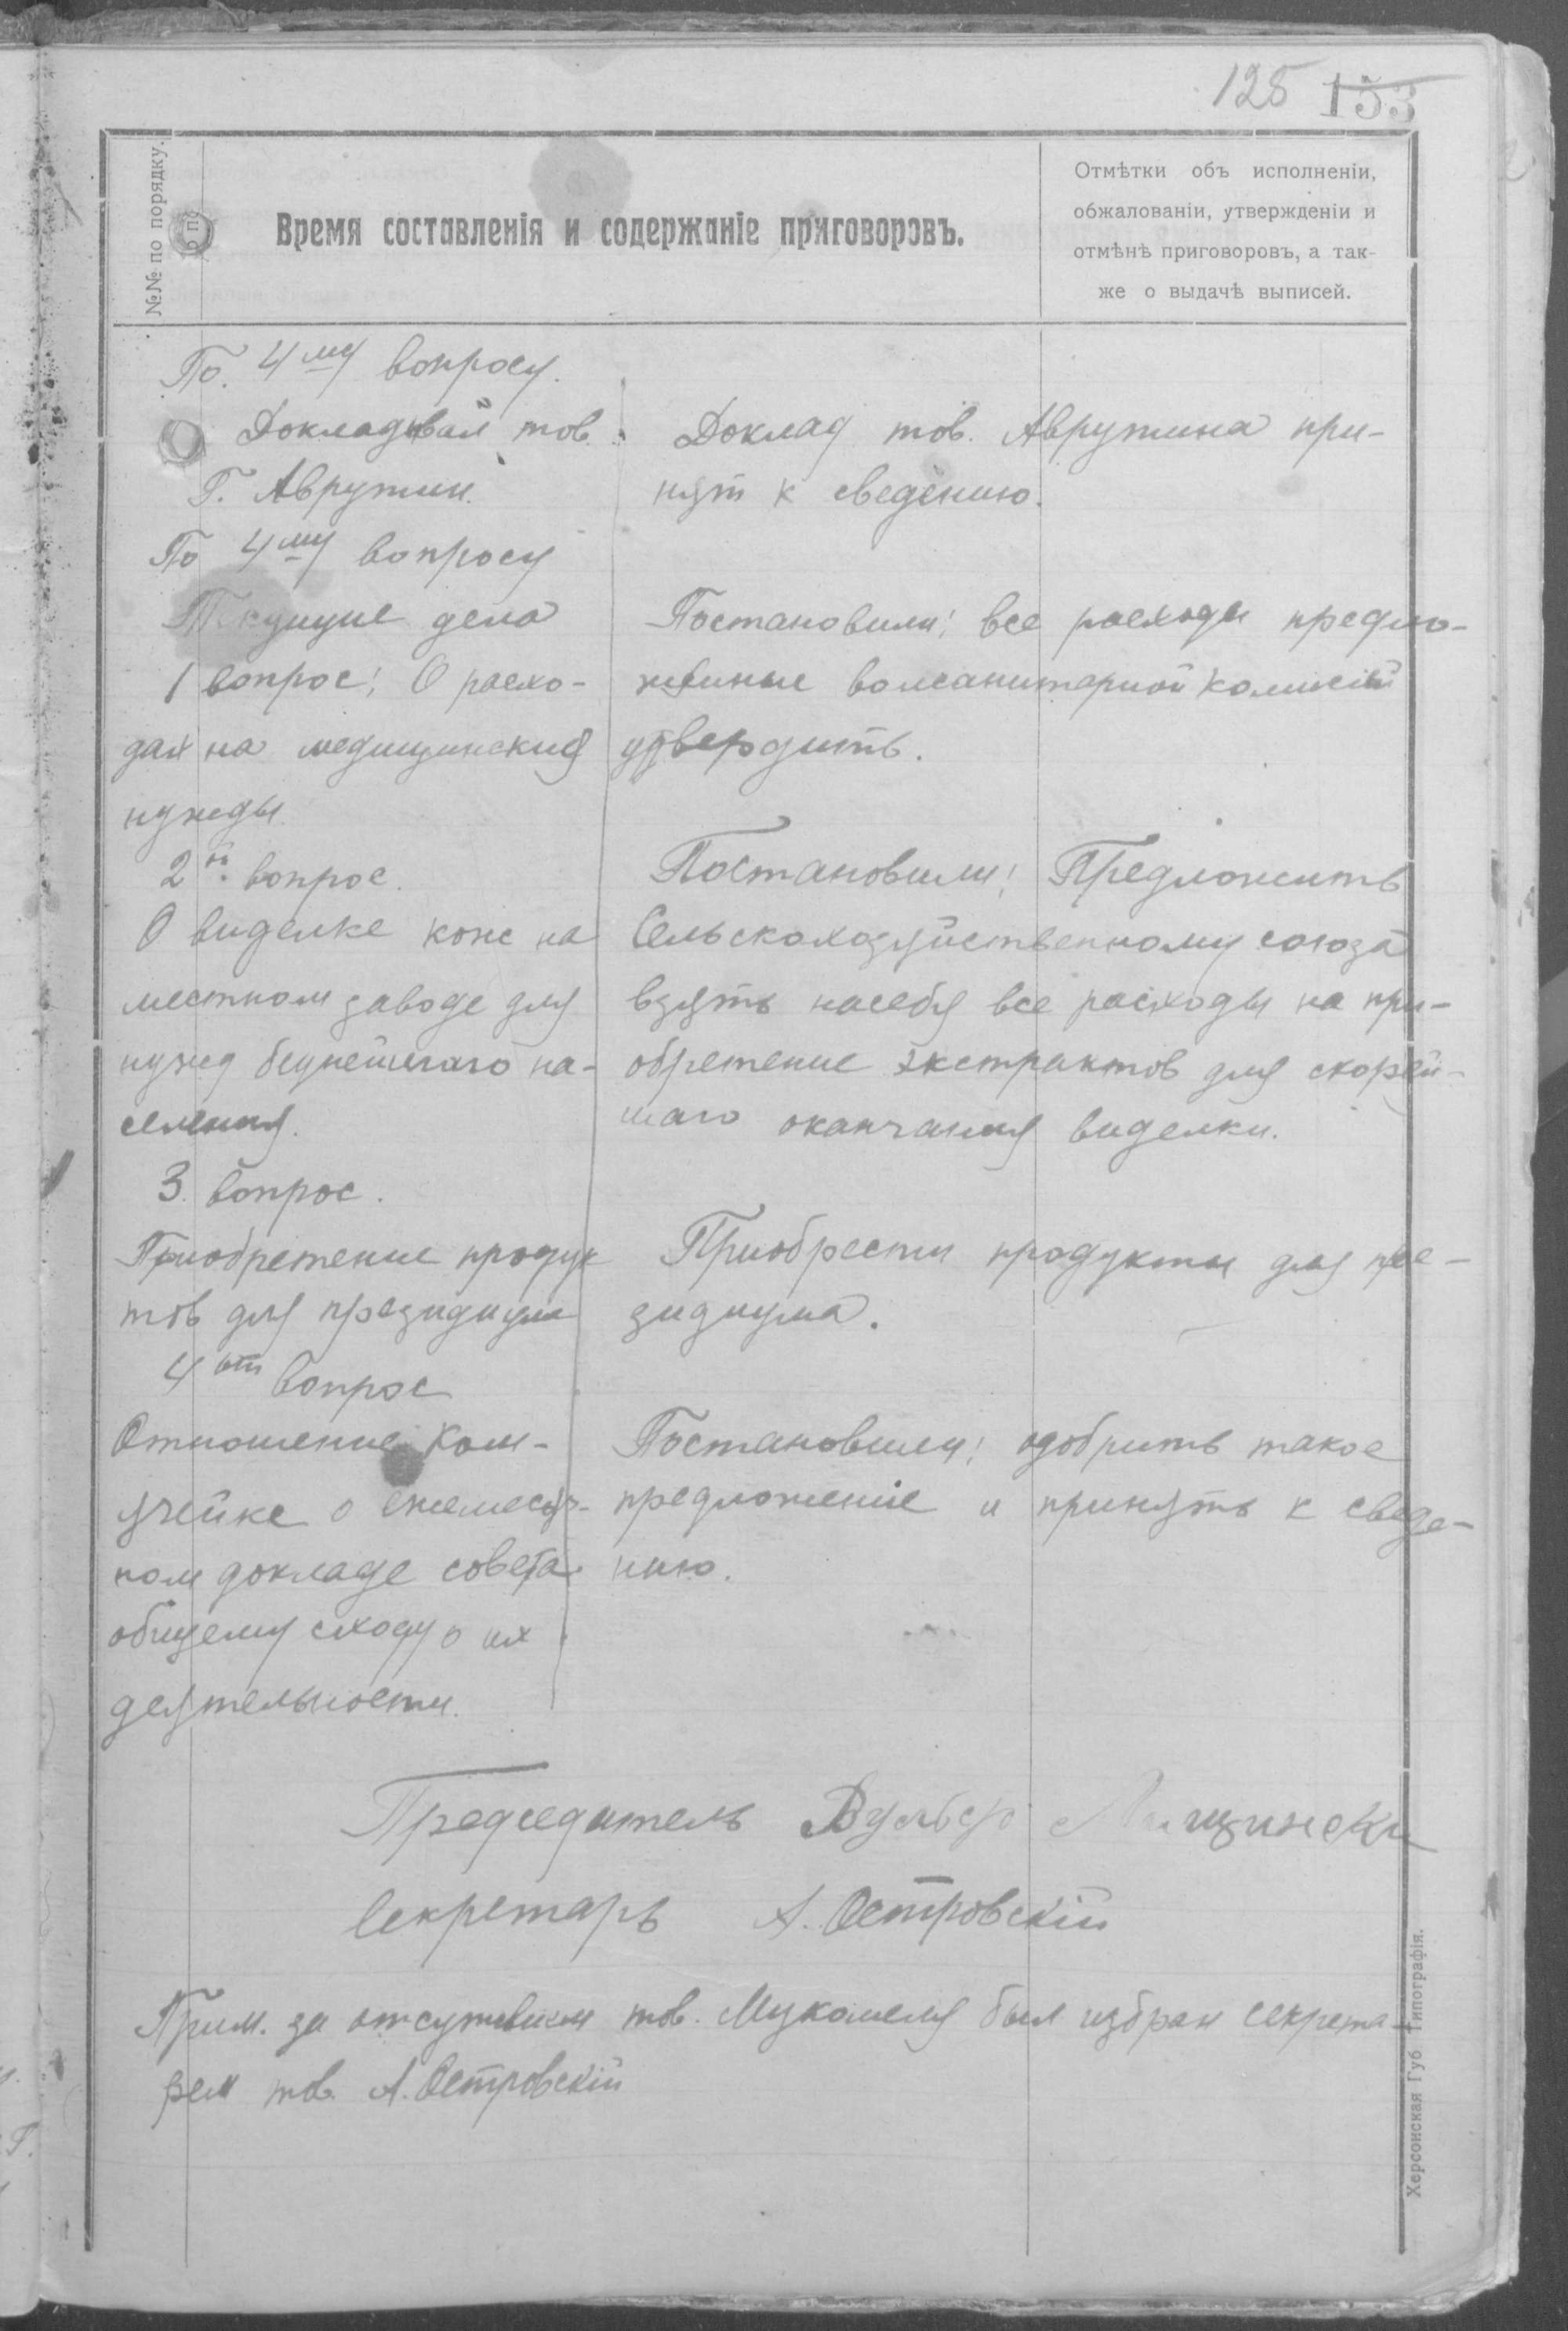 125 153
№№ по порядку.
Время составленія и содержаніе приговоровъ.
Отмѣтки объ исполненіи,
обжалованіи, утвержденіи и
отмѣнѣ приговоровъ, а так-
же о выдачѣ выписей.
По. 4му вопросу.
Докладывал тов.
Г. Аврутин.
Доклад тов. Аврутина при-
нят к сведению.
По 4му вопросу
Текущие дела
1 вопрос: О расхо-
дах на медицинский
нужды
Постановили: все расходы предло-
женные волсанитарной комисій
утвердить.
2й вопрос.
О виделке кож на
местном заводе для
нужд беднейшаго на-
селения.
Постановили: Предложить
Сельскохозяйственному союза
взять насебя все расходы на при-
обретение экстрактов для скорей-
шаго окончания виделки.
3. вопрос.
Приобретение продук
тов для президиума
Приобрести продукты для пре-
зидиума.
4ый вопрос
Отношение Ком-
ячейке о ежемесяч-
ном докладе совета
общему сходу о их
деятельности.
Постановили: одобрить такое
предложеніе и принять к сведе-
нию.
Председатель Вульф
Секретарь А. Островскій
Прим. за отсутвием тов. Мукомеля был избран секрета-
рем тов. А. Островскій
Херсонская Губ Типографія.